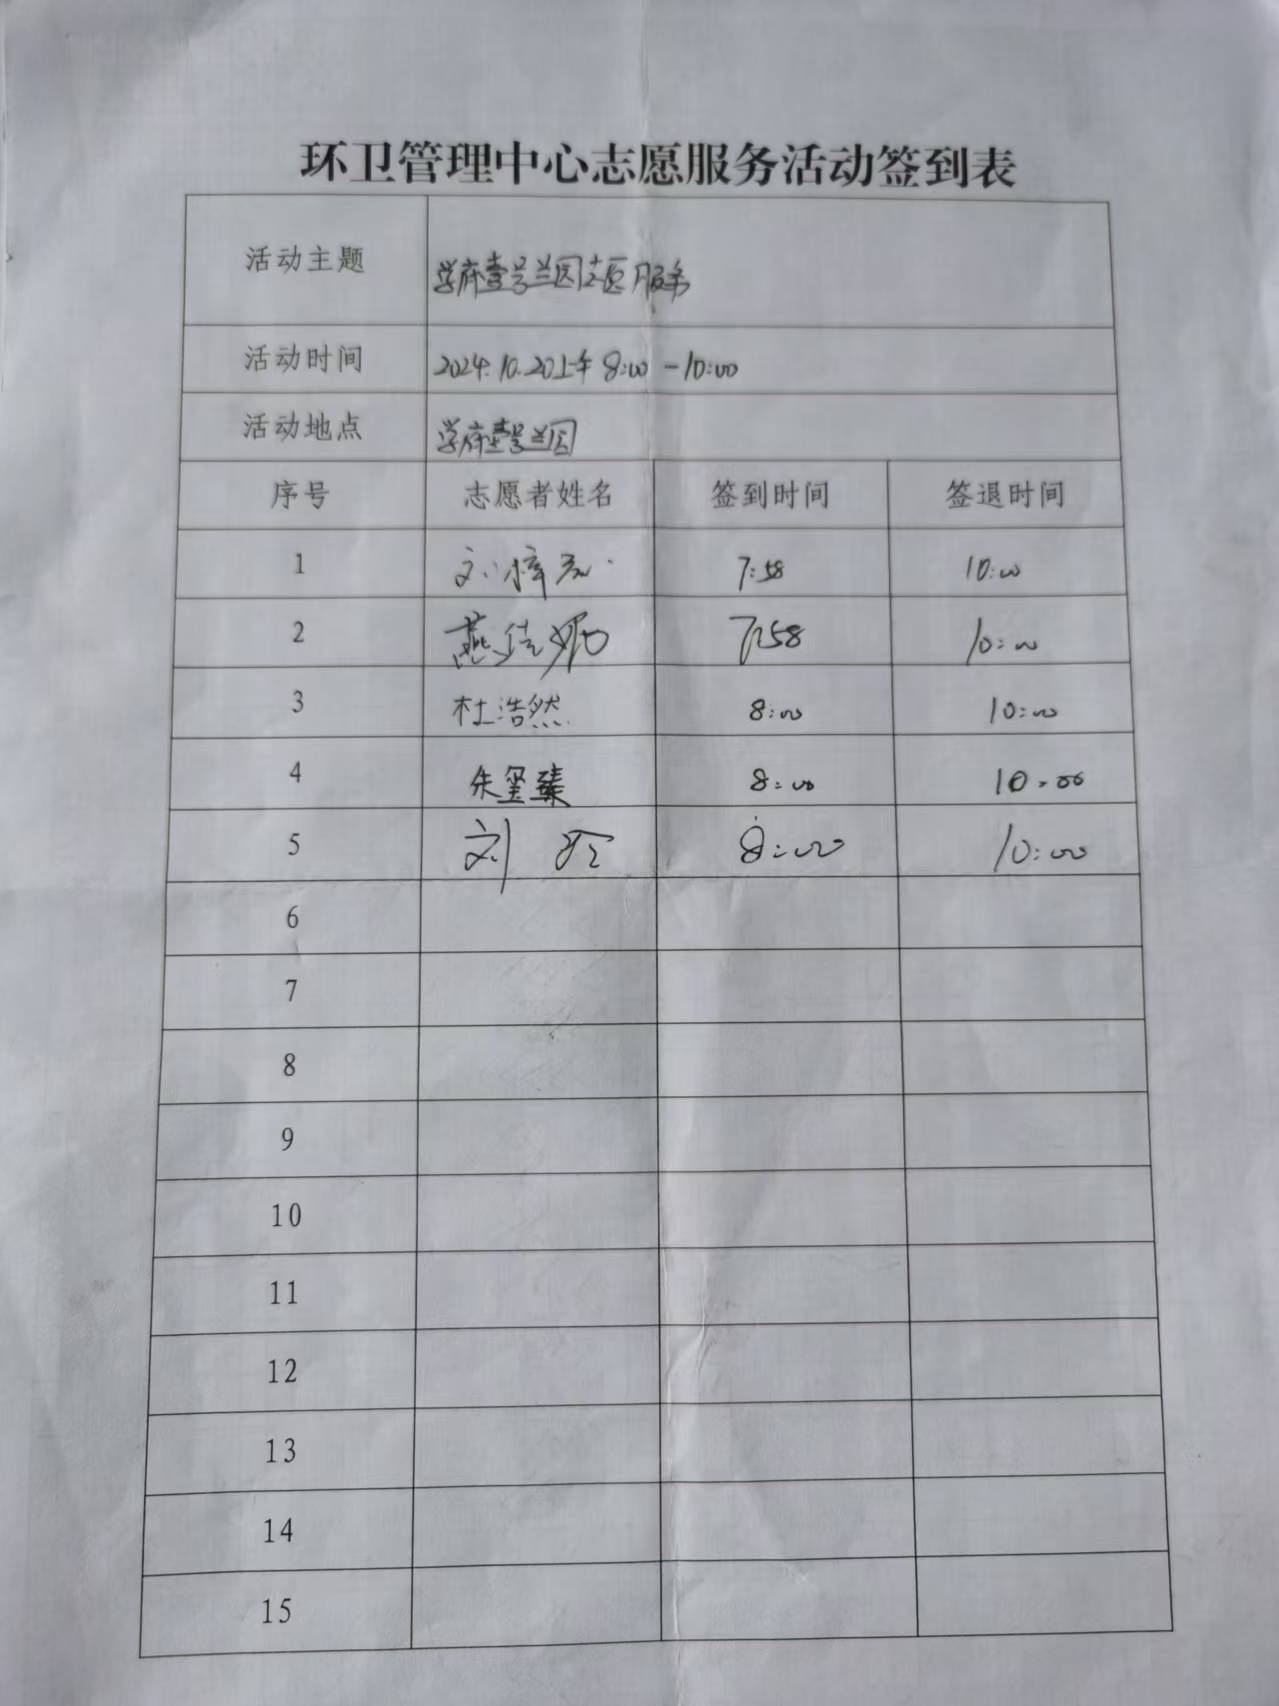 环卫管理中心志愿服务活动签到表
活动主题 学府壹号兰园志愿服务
活动时间 2024.10.20上午 8:00-10:00
活动地点 学府壹号兰园
序号 志愿者姓名 签到时间 签退时间
1 刘梓 7:58 10:00
2 燕佳 7:58 10:00
3 杜浩然 8:00 10:00
4 朱玺臻 8:00 10:00
5 刘 8:00 10:00
6
7
8
9
10
11
12
13
14
15